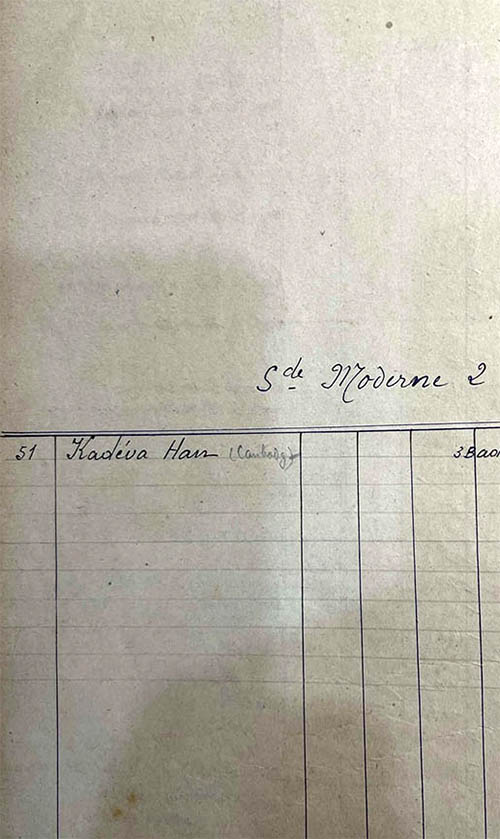 Sde Moderne 2
51 Kadéva Han (Cambodg) 3 Bao